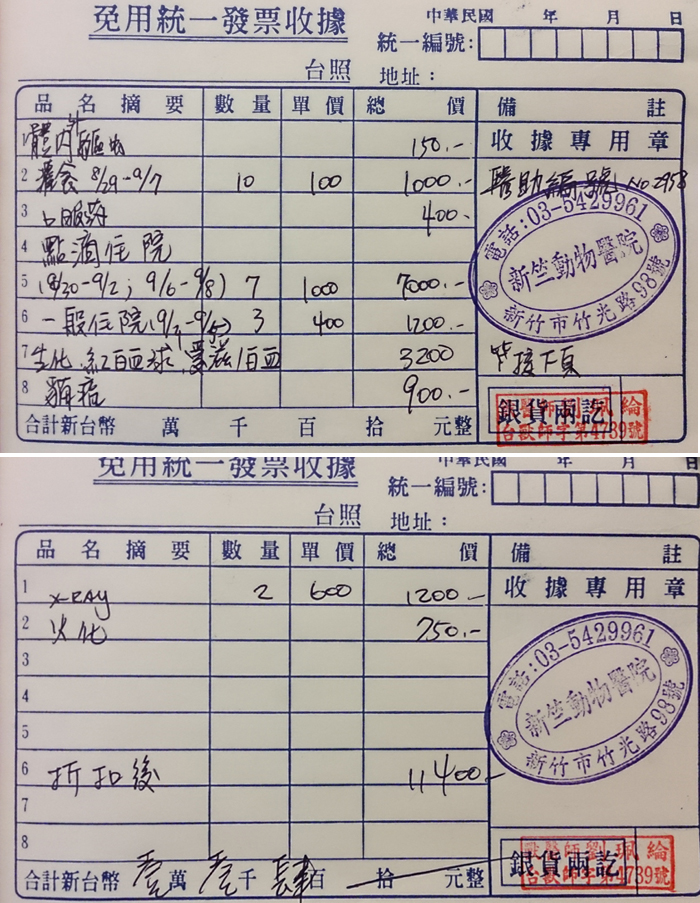 免用統一發票收據
中華民國 年 月 日
統一編號:
台照 地址:
品名摘要 數量 單價 總價 備註
體內外驅蟲 150.-
收據專用章
2 灌食 8/29-9/7 10 100 1000.-
醫助編號 No2958
3 口服藥 400.-
4 點滴住院
5 (8/30-9/2; 9/6-9/8) 7 1000 7000.-
6 一般住院(9/3-9/5) 3 400 1200.-
7 生化.紅白血球. 3200
8 貓瘟 900.-
電話:03-5429961
新竺動物醫院
新竹市竹光路98號
接下頁
銀貨兩訖
獸醫師劉珮綸
台獸師字第4739號
合計新台幣 萬 千 百 拾 元整
免用統一發票收據
中華民國 年 月 日
統一編號:
台照 地址:
品名摘要 數量 單價 總價 備註
收據專用章
1 X-RAY 2 600 1200.-
2 火化 750.-
3
4
5
6 折扣後 11400.-
7
8
電話:03-5429961
新竺動物醫院
新竹市竹光路98號
銀貨兩訖
獸醫師劉珮綸
台獸師字第4739號
合計新台幣 壹萬 壹千 肆百 拾 元整